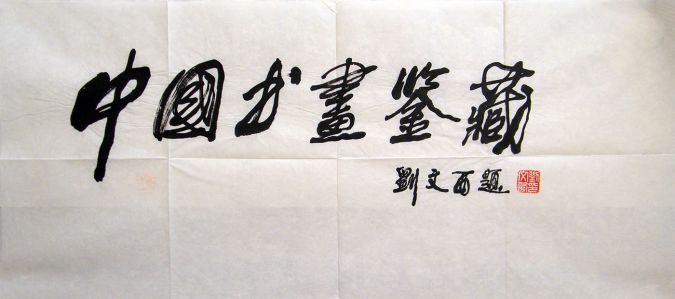 中國书畫鉴藏
劉文西題